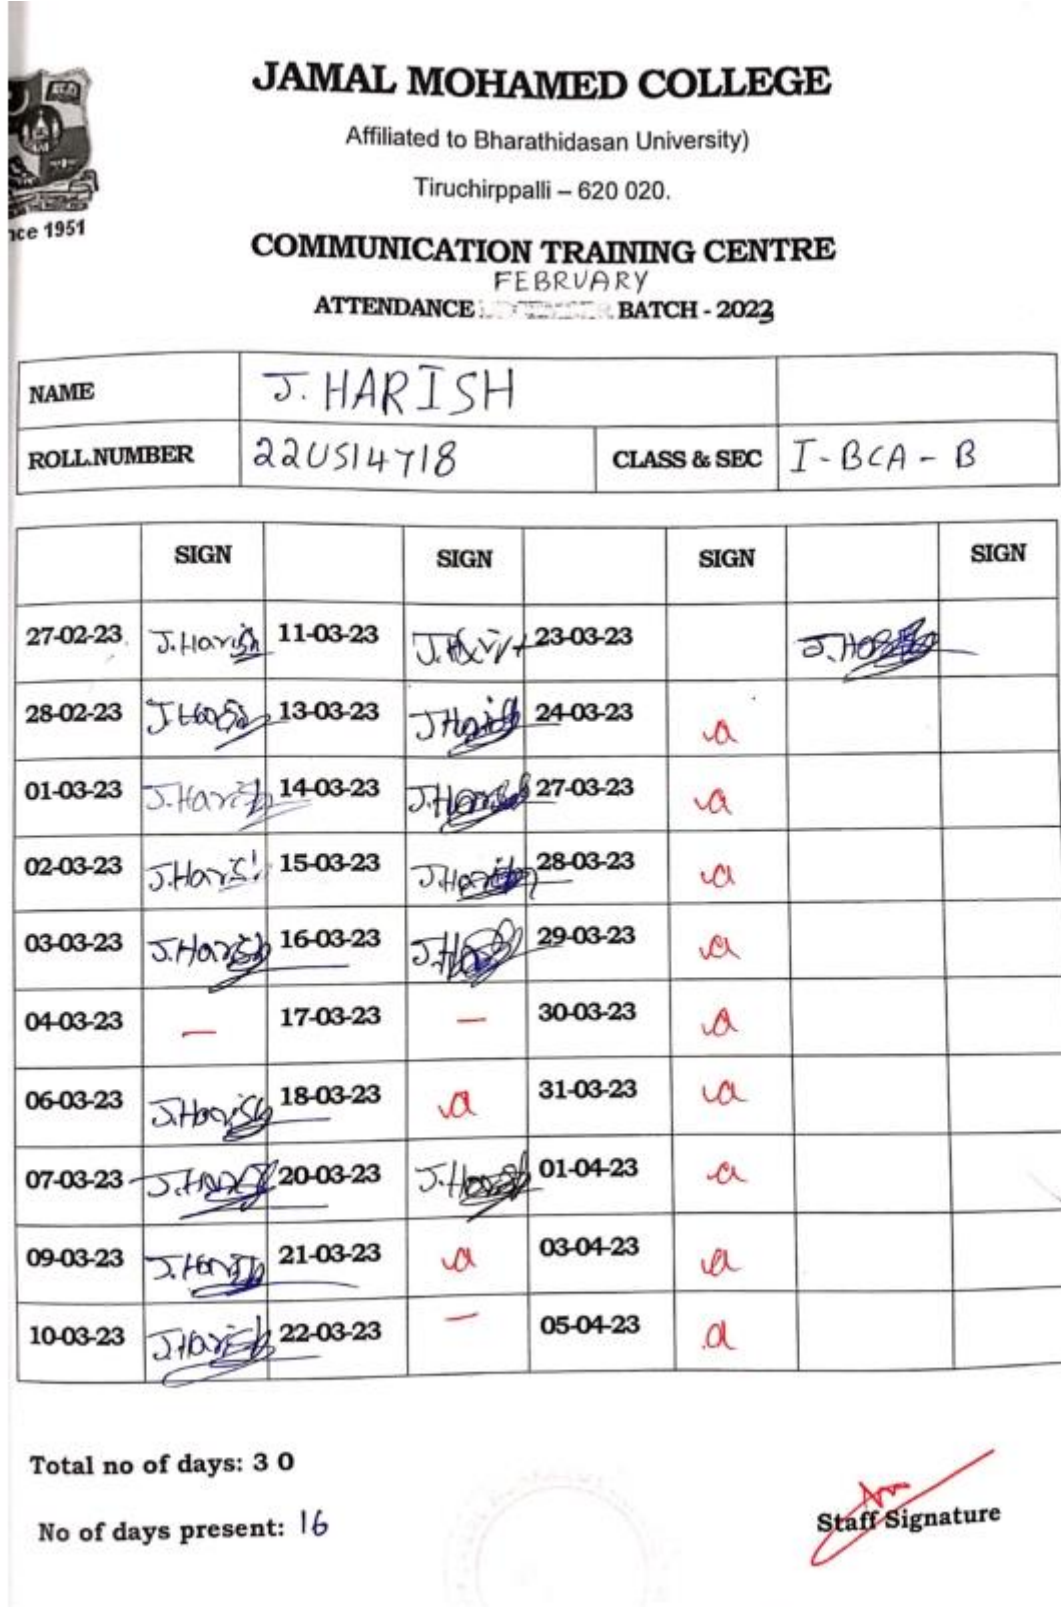 JAMAL MOHAMED COLLEGE
Affiliated to Bharathidasan University)
Tiruchirppalli – 620 020.
nce 1951
COMMUNICATION TRAINING CENTRE
FEBRUARY
ATTENDANCE BATCH - 2023
NAME J. HARISH
ROLL.NUMBER 22US14718 CLASS & SEC I - BCA - B
SIGN SIGN SIGN SIGN
27-02-23 J.Harish 11-03-23 J.Harish 23-03-23 J.Harish
28-02-23 J.Harish 13-03-23 J.Harish 24-03-23 a
01-03-23 J.Harish 14-03-23 J.Harish 27-03-23 a
02-03-23 J.Harish 15-03-23 J.Harish 28-03-23 a
03-03-23 J.Harish 16-03-23 J.Harish 29-03-23 a
04-03-23 — 17-03-23 — 30-03-23 a
06-03-23 J.Harish 18-03-23 a 31-03-23 a
07-03-23 J.Harish 20-03-23 J.Harish 01-04-23 a
09-03-23 J.Harish 21-03-23 a 03-04-23 a
10-03-23 J.Harish 22-03-23 — 05-04-23 a
Total no of days: 30
No of days present: 16
Staff Signature